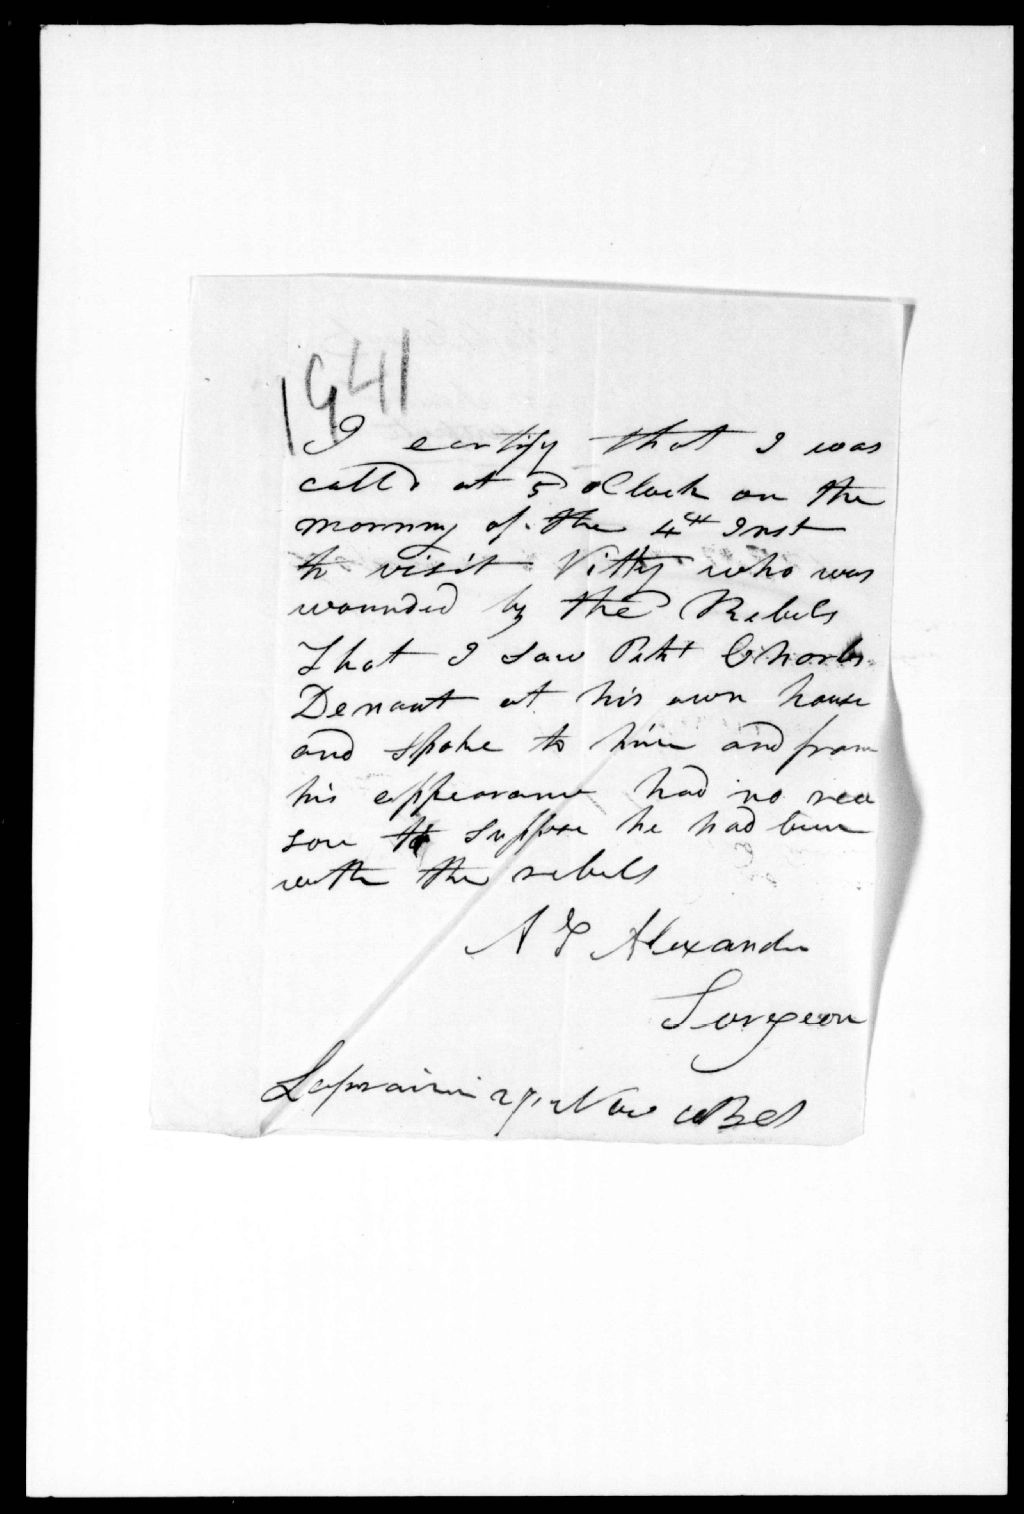 1941
I certify that I was
calld at 5 oClock on the
morning of the 4th Inst
to visit Vitty who was
wounded by the Rebels
That I saw Charles
Denaut at his own house
and spoke to him and from
his appearance had no rea
son to suppose he had been
with the rebels
Alexander
Surgeon
Laprairie 27 Nov